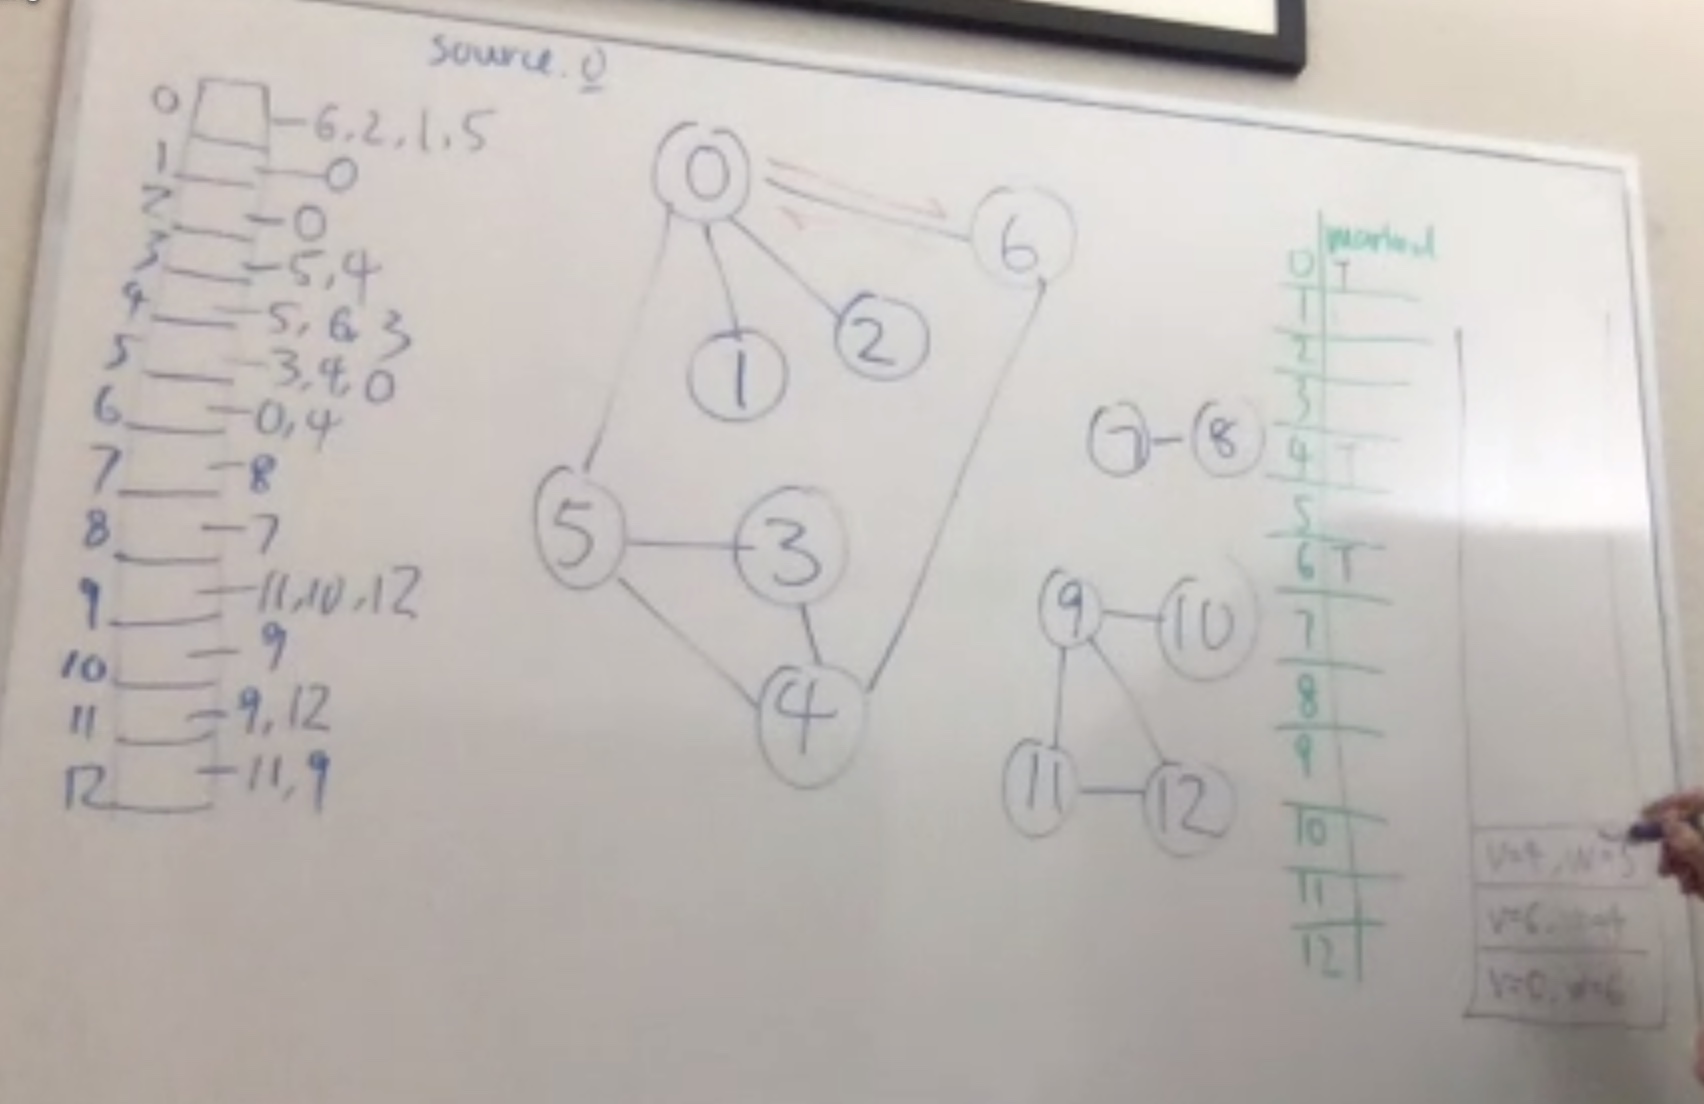 source. 0
0 6,2,1,5
1 0
2 0
3 5,4
4 5,6,3
5 3,4,0
6 0,4
7 8
8 7
9 11,10,12
10 9
11 9,12
12 11,9
0
6
1
2
5
3
4
7
8
9
10
11
12
marked
0 T
1
2
3
4 T
5
6 T
7
8
9
10
11
12
v=4, w=5
v=6, w=4
v=0, w=6